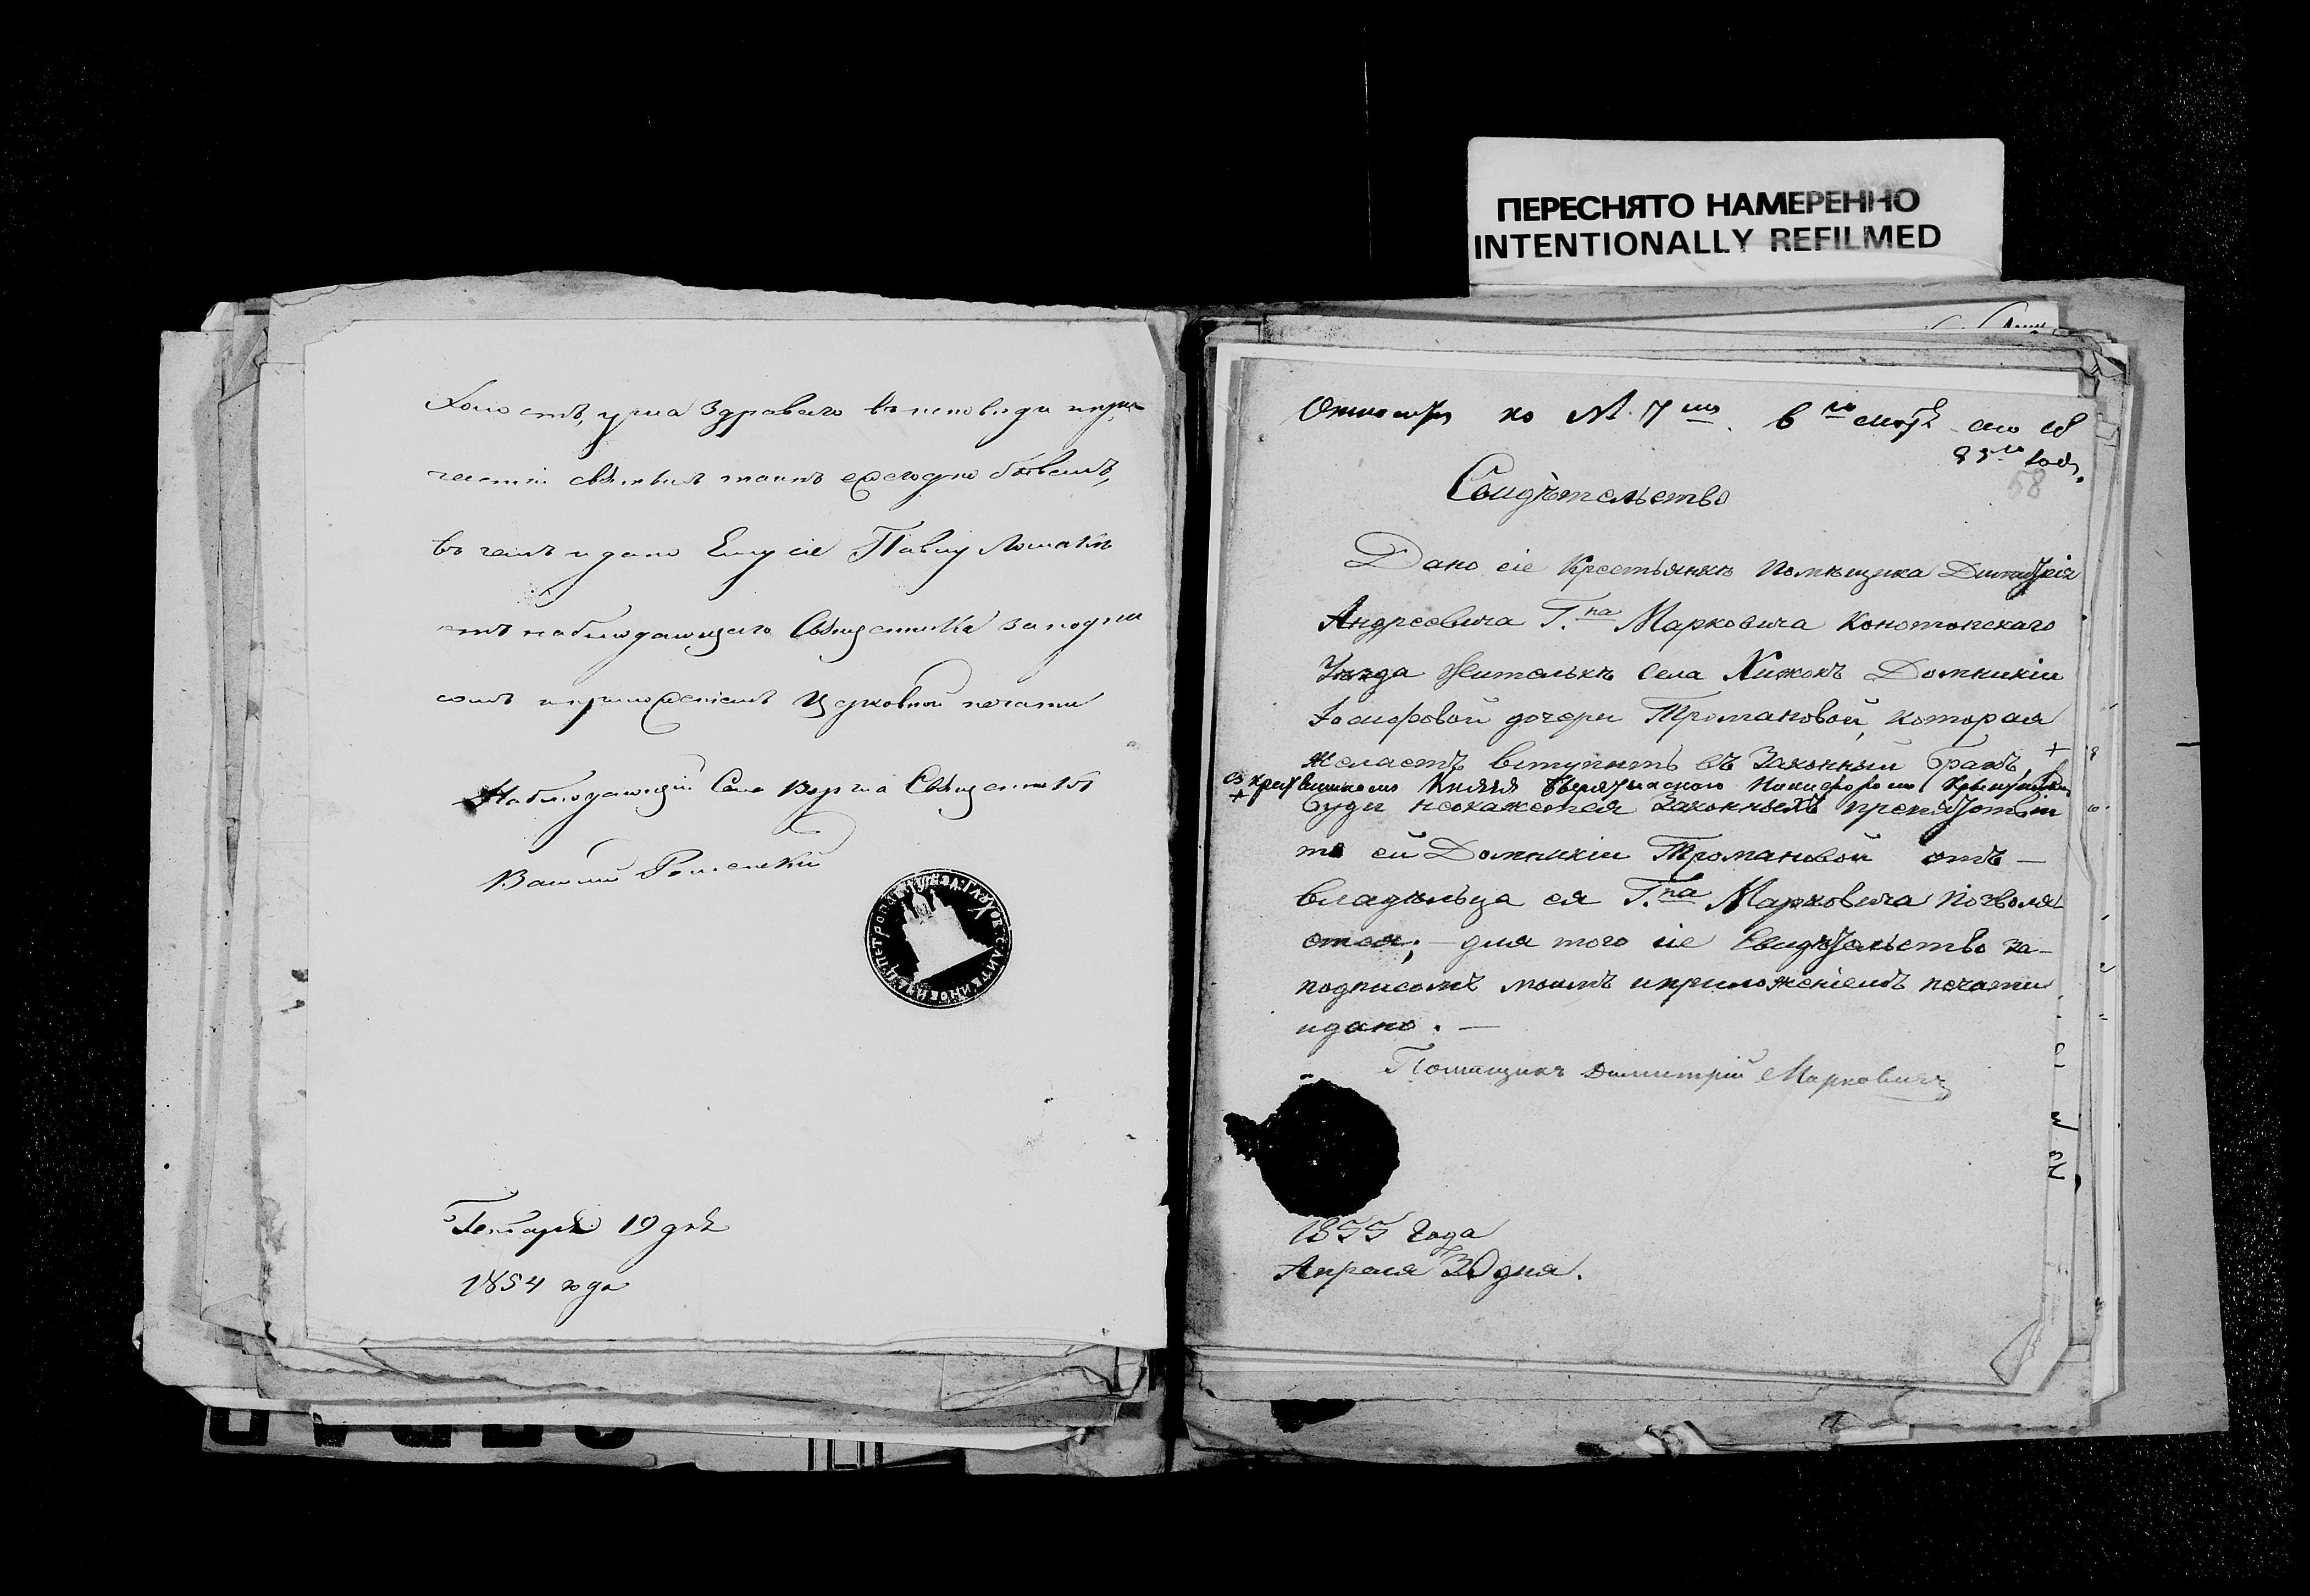 ПЕРЕСНЯТО НАМЕРЕННО
INTENTIONALLY REFILMED
Холостъ, ума здраваго въ исповѣди и при-
частіи святыхъ таинъ ежегодно бываетъ,
въ чемъ и дано Ему сіе Павлу
отъ наблюдающаго Священника за подпи
сомъ и приложеніемъ Церковной печати
Наблюдающій Село Ворг Священникъ
19 дня
1854 года
къ №. 7
58
Свидѣтельство
Дано сіе Крестьянкѣ Помѣщика Дмитрія
Андреевича Г.на Марковича Конотопскаго
Уѣзда Жителькѣ Села Хижокъ Домникіи
Іосифовой дочери Тромановой, которая
желаетъ вступить въ Законный бракъ, +
+ Князя Никифоромъ
буди неокажется Законныхъ препятствій
то ей Домникіи Тромановой отъ —
владѣльца ея Г.на Марковича позволя
ется; — для того сіе Свидѣтельство за-
подписомъ моимъ и приложеніемъ печати
и дано. —
Помѣщикъ Димитрій Марковичъ
1855 Года
Апреля 30 дня.